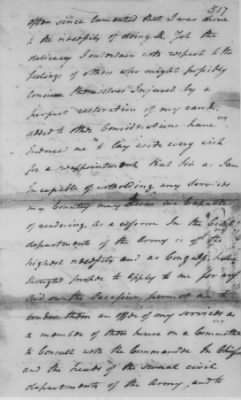 517
often since lamented that I was drove
to the necessity of doing it. Yet the
delicacy I entertain with respect to the
feelings of others who might possibly
conceive themselves Injured by a
perfect restoration of my rank
added to other Considerations have
Induced me to lay aside every wish
for a reappointment. But Sir as I am
incapable of withholding any Services
my Country may deem me Capable
of rendering as a reform In the Civil
departments of the Army is of the
highest necessity and as Congress have
thought proper to apply to me for my
aid on the Occasion, permit me to
tender them an offer of my services as
a member of their house on a Committee
to Consult with the Commander In Chief
and the heads of the several civil
departments of the Army, and to